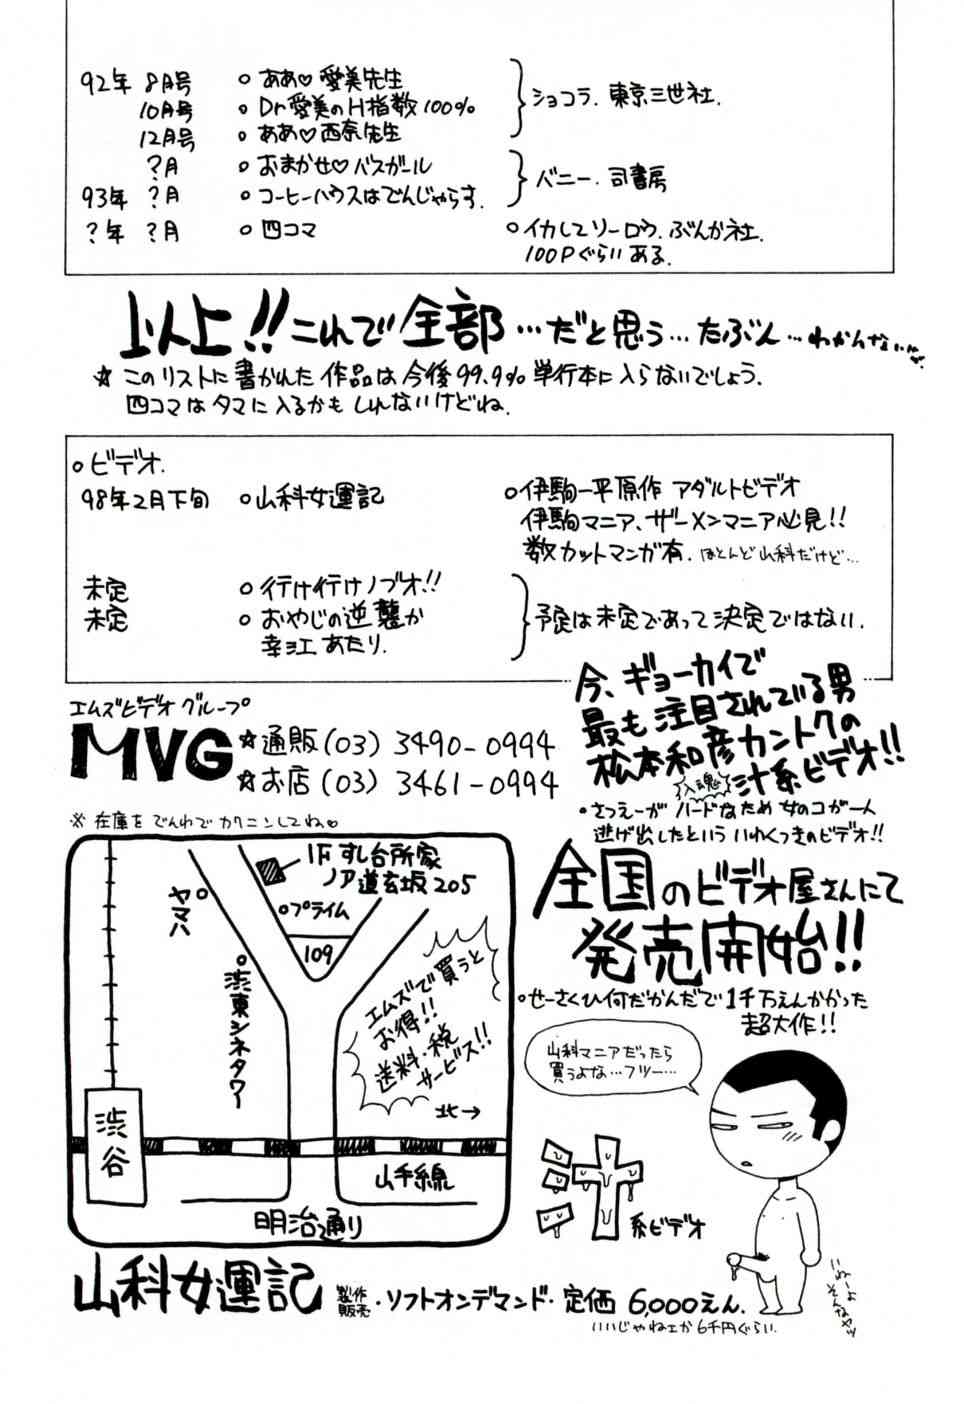 92年 8月号 ○ ああ♡愛美先生
10月号 ○ Dr愛美のH指数100%
12月号 ○ ああ♡西奈先生
ショコラ. 東京三世社.
?月 ○ おまかせ♡バスガール
93年 ?月 ○ コーヒーハウスはでんじゃらす.
バニー. 司書房
?年 ?月 ○ 四コマ ○ イカしてソーロウ. ぶんか社.
100Pぐらいある.
以上!!これで全部…だと思う…たぶん…わかんないな
☆このリストに書かれた作品は今後99.9%単行本に入らないでしょう.
四コマはタマに入るかもしれないけどね.
○ビデオ.
98年2月下旬 ○山科女運記 ○伊駒一平原作 アダルトビデオ
伊駒マニア、ザーメンマニア必見!!
数カットマンガ有. ほとんど山科だけど…
未定 ○ 行け行けノブオ!!
未定 ○ おやじの逆襲か
幸江あたり.
予定は未定であって決定ではない.
今、ギョーカイで
最も注目されている男
松本和彦カントクの
入魂
汁系ビデオ!!
・さつえーがハードなため女のコが一人
逃げ出したといういわくつきのビデオ!!
全国のビデオ屋さんにて
発売開始!!
○せーさくひ何だかんだで1千万えんかかった
超大作!!
エムズビデオグループ
MVG ☆通販(03) 3490-0994
☆お店(03) 3461-0994
※ 在庫をでんわでカクニンしてね♡
1F すし台所家
ノア道玄坂205
ヤマハ
○プライム
109
渋東シネタワー
エムズで買うと
お得!!
送料・税
サービス!!
北→
渋谷
山手線
明治通り
山科マニアだったら
買うよな…フツー…
汁
系ビデオ
いねーよ
そんなヤツ
山科女運記 製作
販売・ソフトオンデマンド・定価 6,000えん.
いいじゃねェか6千円ぐらい